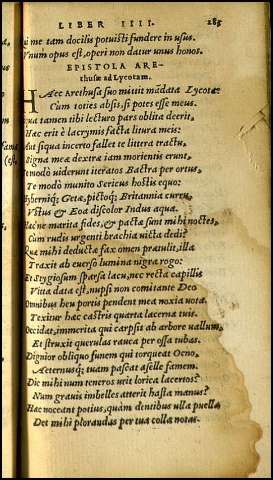 LIBER IIII. 285
Qui me tam docilis potuisti fundere in usus.
Vnum opus est, operi non datur unus honos.
EPISTOLA ARE-
thusæ ad Lycotam.
HAec Arethusa suo mittit mãdata Lycotæ
Cum toties absis, si potes esse meus.
Siqua tamen tibi lecturo pars oblita deerit,
Hæc erit è lacrymis facta litura meis:
Aut siqua incerto fallet te littera tractu,
Signa meæ dextræ iam morientis erunt,
Te modò uiderunt iteratos Bactra per ortus,
Te modò munito Sericus hostis equo:
Hyberniq; Getæ, pictoq; Britannia curru,
Vstus & Eoa discolor Indus aqua.
Hæc ne marita fides, & pactæ sunt mihi noctes,
Cum rudis urgenti brachia uicta dedi?
Quæ mihi deductæ fax omen prætulit, illa
Traxit ab euerso lumina nigra rogo:
Et Stygio sum sparsa lacu, nec recta capillis
Vitta data est, nupsi non comitante Deo
Omnibus heu portis pendent mea noxia uota.
Texitur hæc castris quarta lacerna tuis.
Occidat, immerita qui carpsit ab arbore uallum,
Et struxit querulas rauca per ossa tubas.
Dignior obliquo funem qui torqueat Ocno,
Aeternusq; tuam pascat aselle famem.
Dic mihi num teneros urit lorica lacertos?
Num grauis imbelles atterit hasta manus?
Hæc noceant potius, quàm dentibus ulla puella
Det mihi plorandas per tua colla notas.